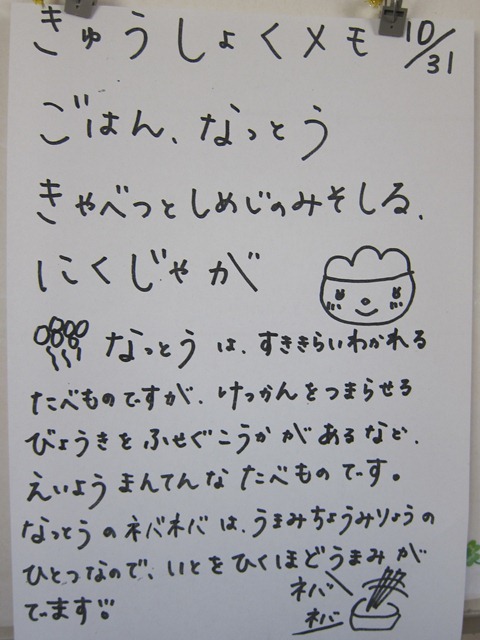 きゅうしょくメモ 10/31
ごはん、なっとう
きゃべつとしめじのみそしる、
にくじゃが
なっとうは、すききらいわかれる
たべものですが、けっかんをつまらせる
びょうきをふせぐこうかがあるなど、
えいようまんてんなたべものです。
なっとうのネバネバは、うまみちょうみりょうの
ひとつなので、いとをひくほどうまみが
でます!!
ネバ
ネバ